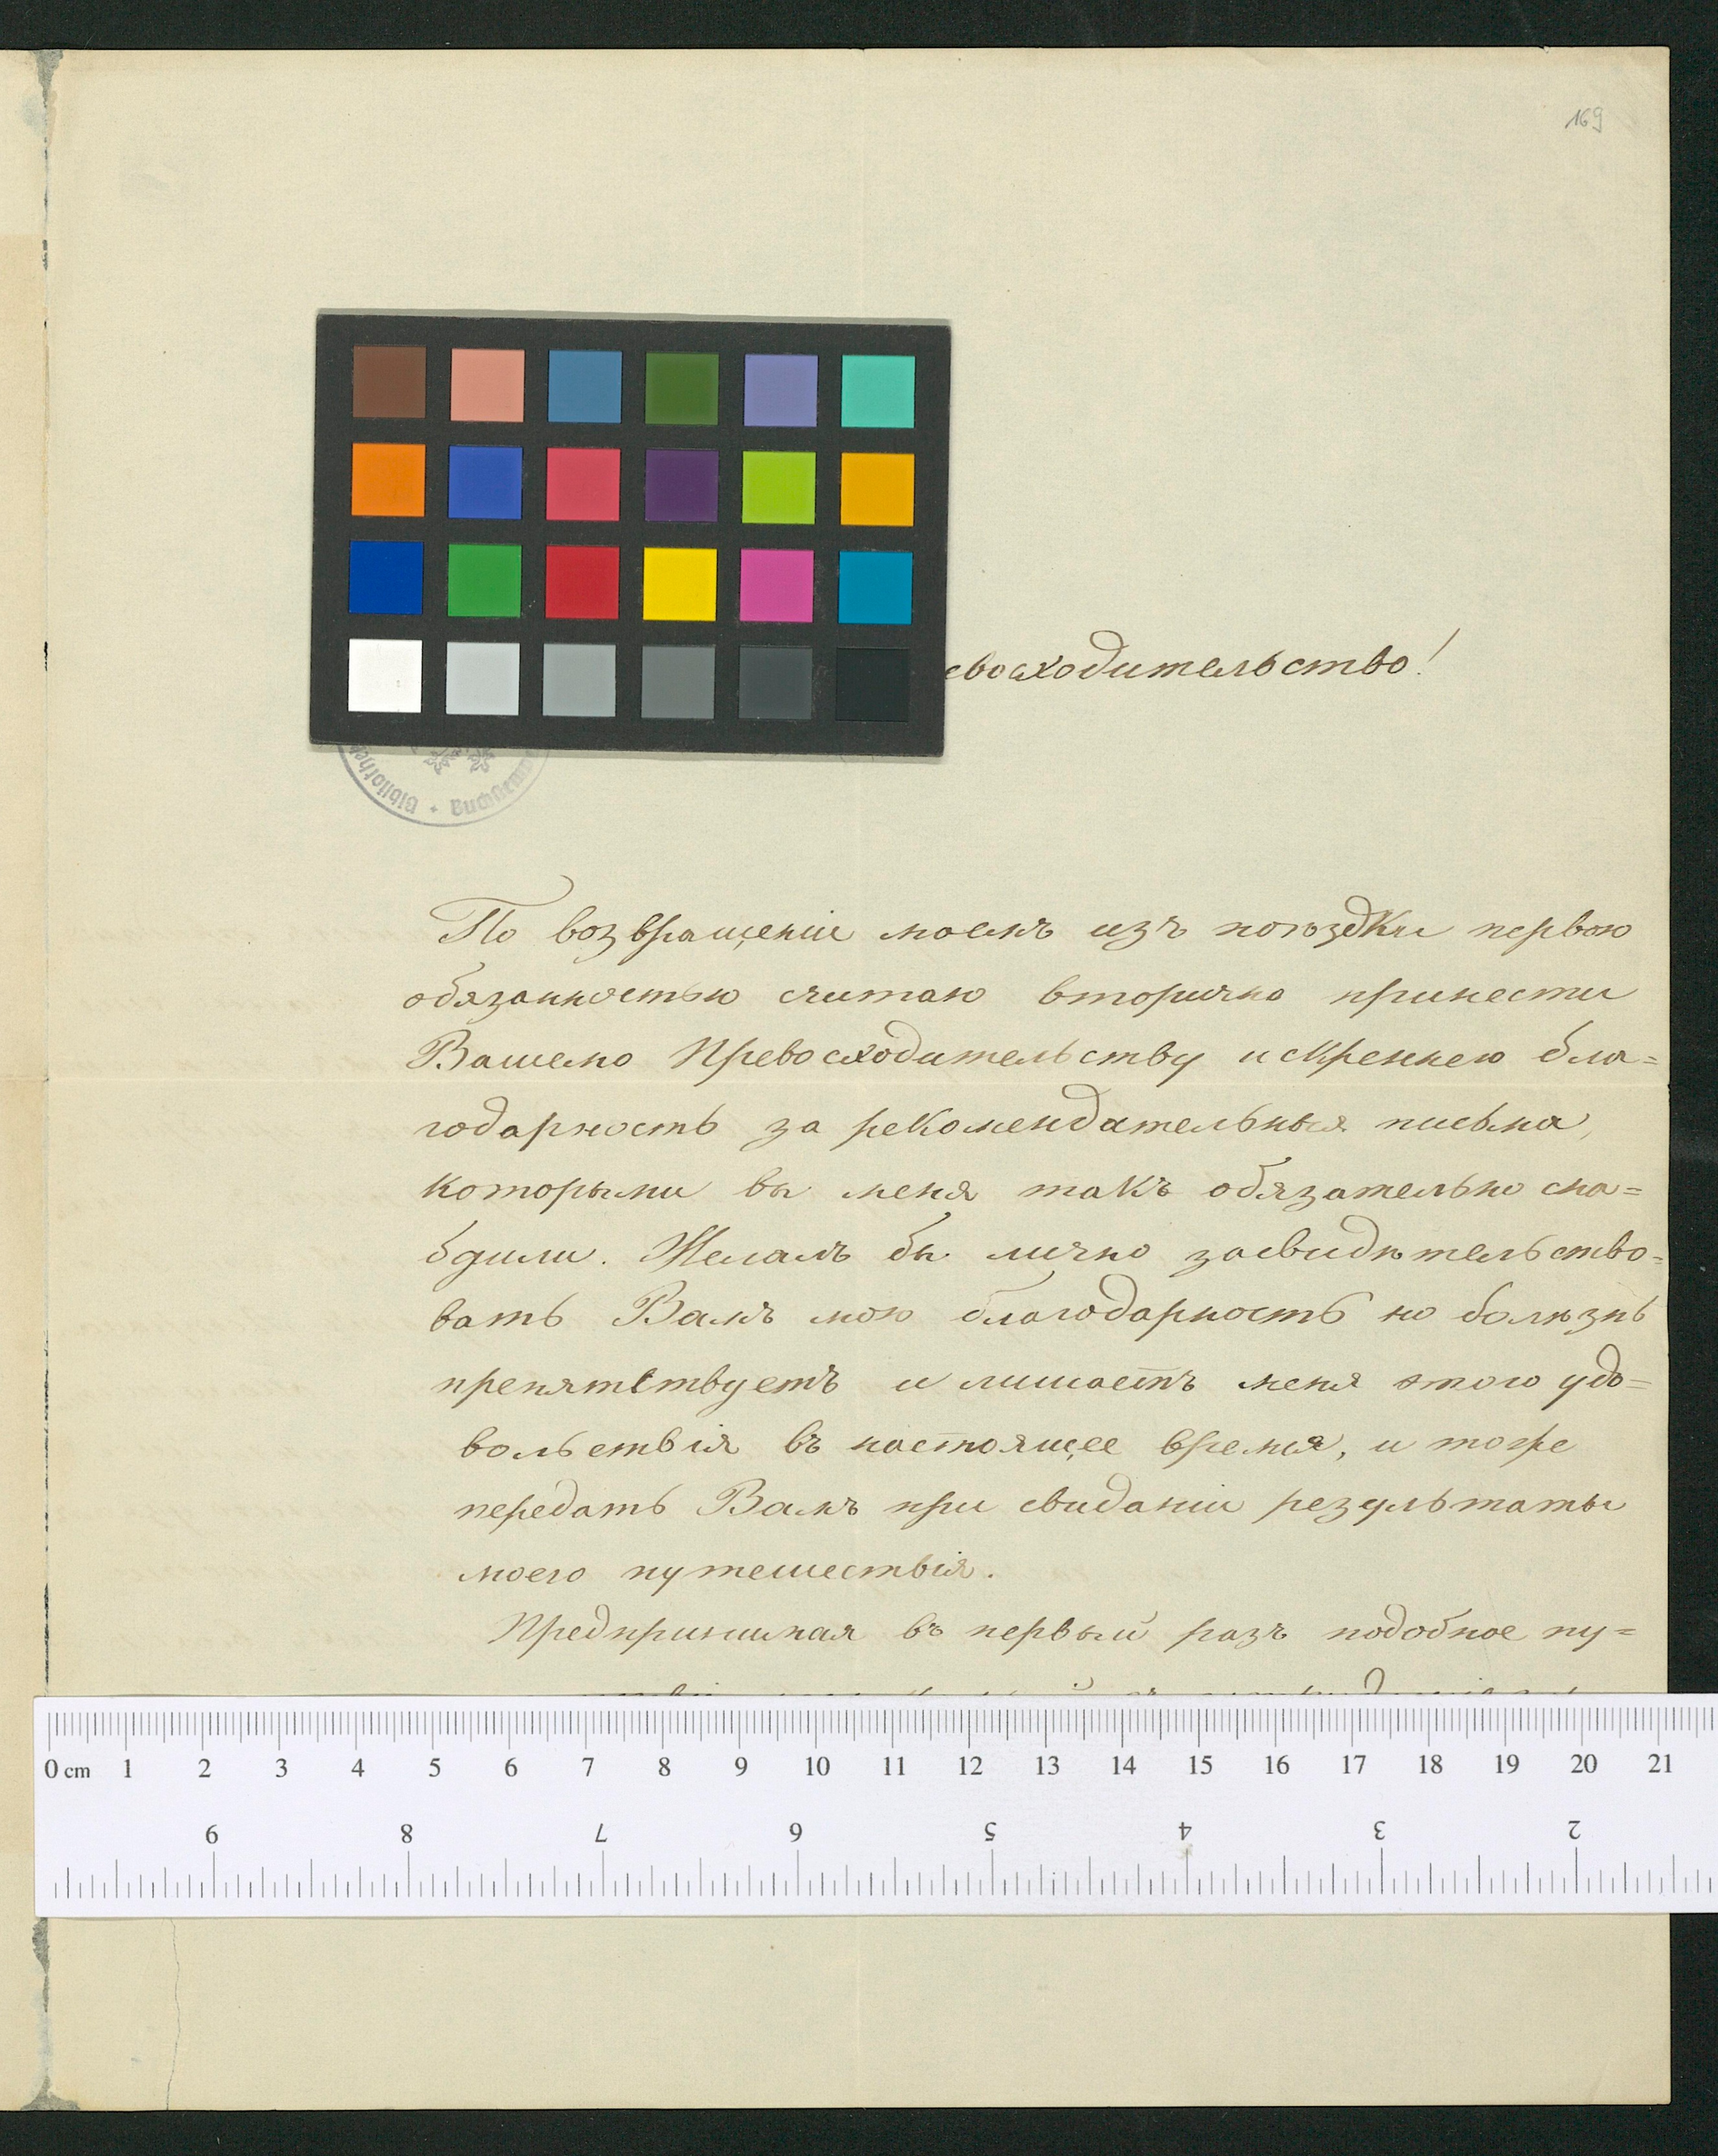 169
евосходительство!
По возвращеніи моемъ изъ поѣздки первою
обязанностью считаю вторично принести
Вашему Превосходительству искреннею бла=
годарность за рекомендательныя письма,
которыми вы меня такъ обязательно сна=
бдили. Желалъ бы лично засвидѣтельство=
вать Вамъ мою благодарность но болѣзнь
препятствуетъ и лишаетъ меня этого удо=
вольствія въ настоящее время, и тоже
передать Вамъ при свиданіи результаты
моего путешествія.
Предпринимая въ первый разъ подобное пу=
0 cm 1 2 3 4 5 6 7 8 9 10 11 12 13 14 15 16 17 18 19 20 21
9 8 7 6 5 4 3 2